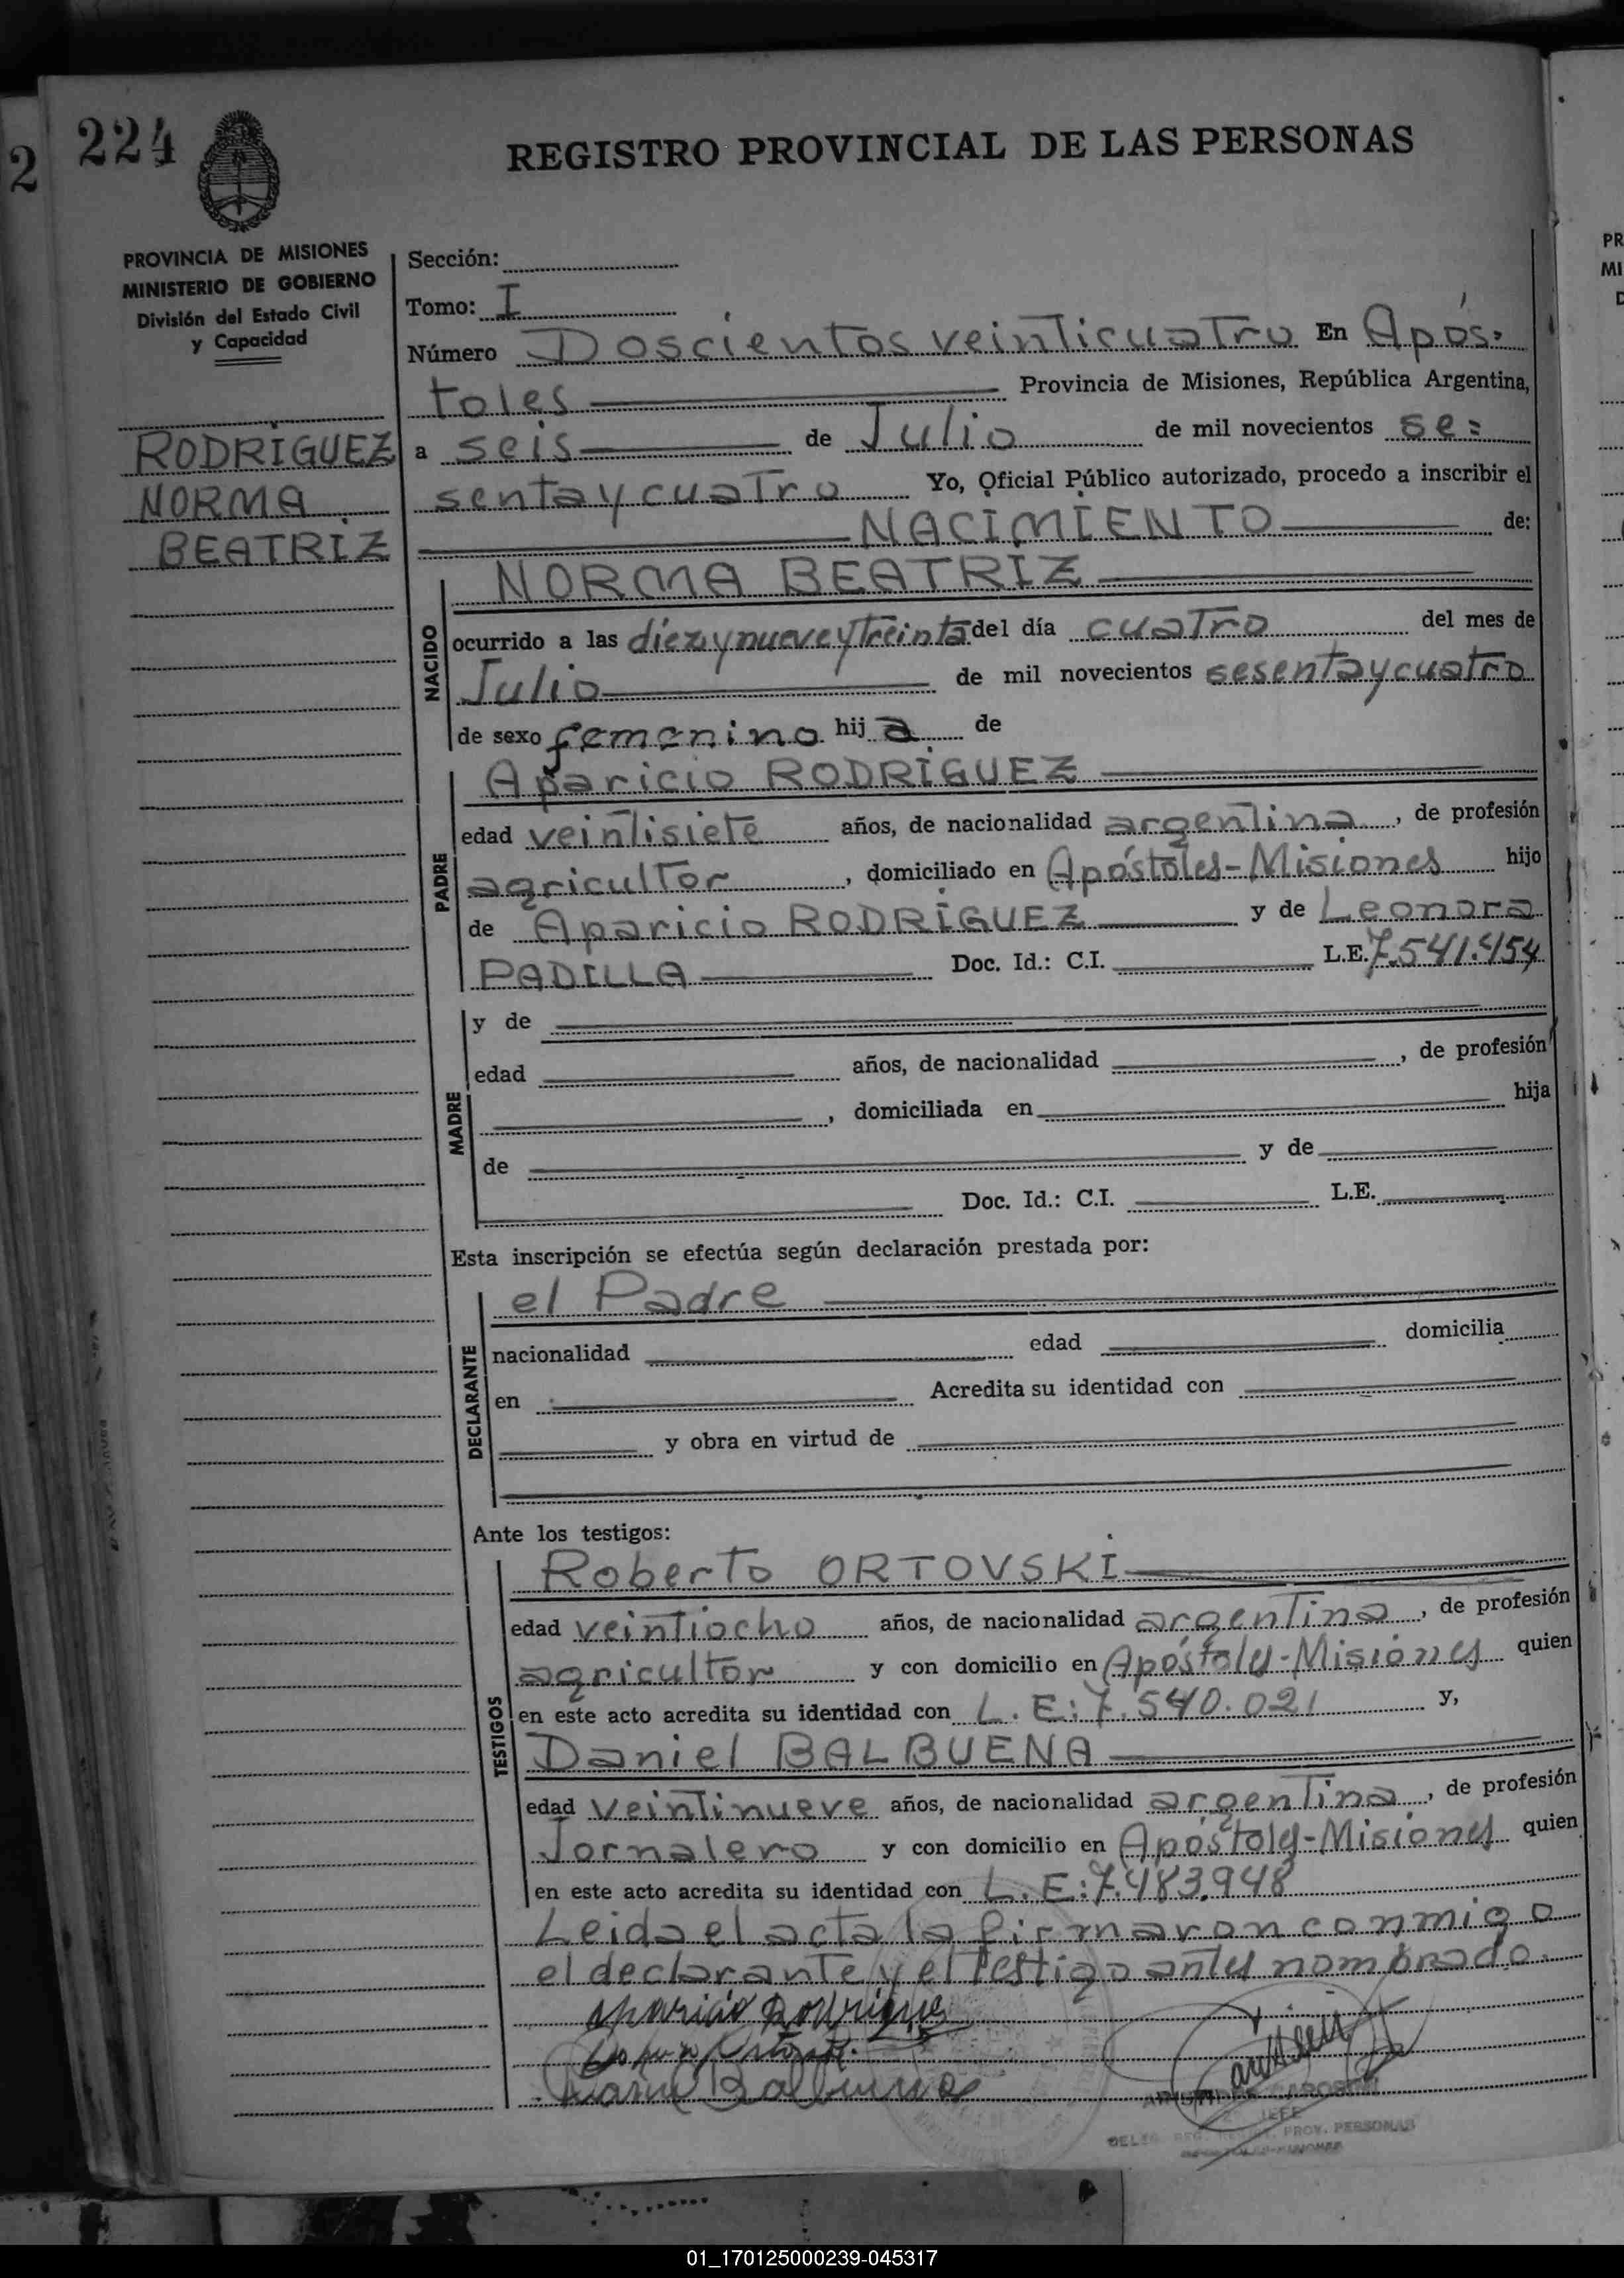 2
224
REGISTRO PROVINCIAL DE LAS PERSONAS
PROVINCIA DE MISIONES
MINISTERIO DE GOBIERNO
División del Estado Civil
y Capacidad
RODRÍGUEZ
NORMA
BEATRIZ
Sección:
Tomo: I
Número Doscientos veinticuatro En Após-
toles Provincia de Misiones, República Argentina,
a seis de Julio de mil novecientos se=
senta y cuatro Yo, Oficial Público autorizado, procedo a inscribir el
NACIMIENTO de:
NACIDO
NORMA BEATRIZ
ocurrido a las diez y nueve y treinta del día cuatro del mes de
Julio de mil novecientos sesenta y cuatro
de sexo femenino hija de
PADRE
Aparicio RODRÍGUEZ
edad veintisiete años, de nacionalidad argentina, de profesión
agricultor, domiciliado en Apóstoles-Misiones hijo
de Aparicio RODRÍGUEZ y de Leonora
PADILLA Doc. Id.: C.I. L.E. 7.541.454
MADRE
y de
edad años, de nacionalidad , de profesión
, domiciliada en hija
de y de
Doc. Id.: C.I. L.E.
Esta inscripción se efectúa según declaración prestada por:
DECLARANTE
el Padre
nacionalidad edad domicilia
en Acredita su identidad con
y obra en virtud de
Ante los testigos:
TESTIGOS
Roberto ORTOVSKI
edad veintiocho años, de nacionalidad argentina, de profesión
agricultor y con domicilio en Apóstoles-Misiones quien
en este acto acredita su identidad con L.E: 7.540.021 y,
Daniel BALBUENA
edad veintinueve años, de nacionalidad argentina, de profesión
Jornalero y con domicilio en Apóstoles-Misiones quien
en este acto acredita su identidad con L.E: 7.483.948
Leida el acta la firmaron conmigo
el declarante y el testigo antes nombrado.
aparicio Rodrigues
Balbuena
JEFE
PROV. PERSONAS
PR
MI
D
01_170125000239-045317